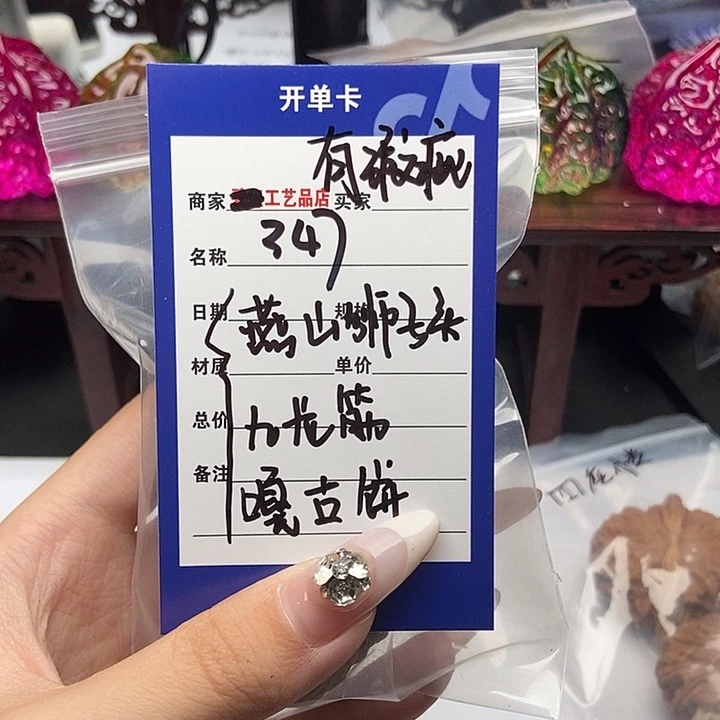 开单卡
有瑕疵
商家 工艺品店 买家
名称 347
日期 规格
燕山狮子头
材质 单价
总价 九龙筋
备注 嘎古饼